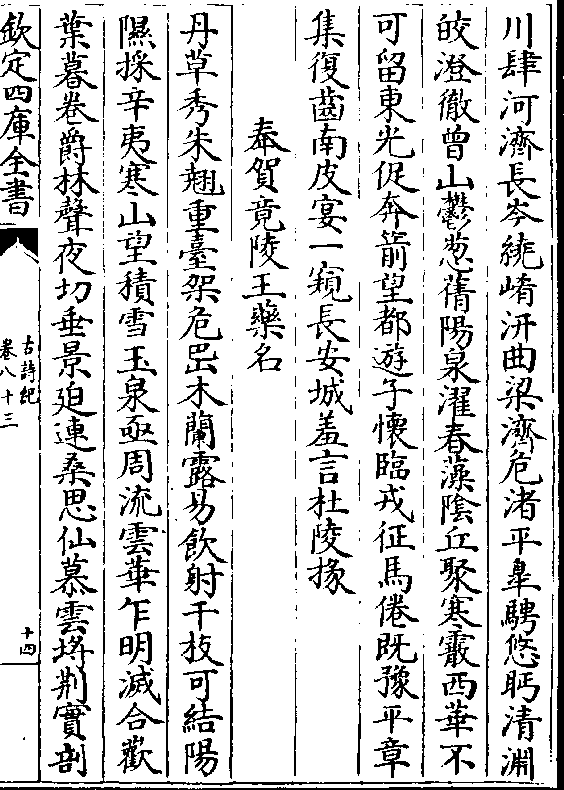 川肆河濟長岑繞崤汧曲梁濟危渚平皐騁悠眄清淵
皎澄徹曾山鬱葱蒨陽泉濯春藻陰丘聚寒霰西華不
可留東光促奔箭望都遊子懷臨戎征馬倦既豫平章
集復齒南皮宴一窺長安城羞言杜陵掾
奉賀竟陵王藥名
丹草秀朱翹重臺架危岊木蘭露易飲射干枝可結陽
隰採辛夷寒山望積雪玉泉亟周流雲華乍明滅合歡
葉暮卷爵林聲夜切垂景迫連桑思仙慕雲埒荆實剖
欽定四庫全書
古詩紀
卷八十三
十四